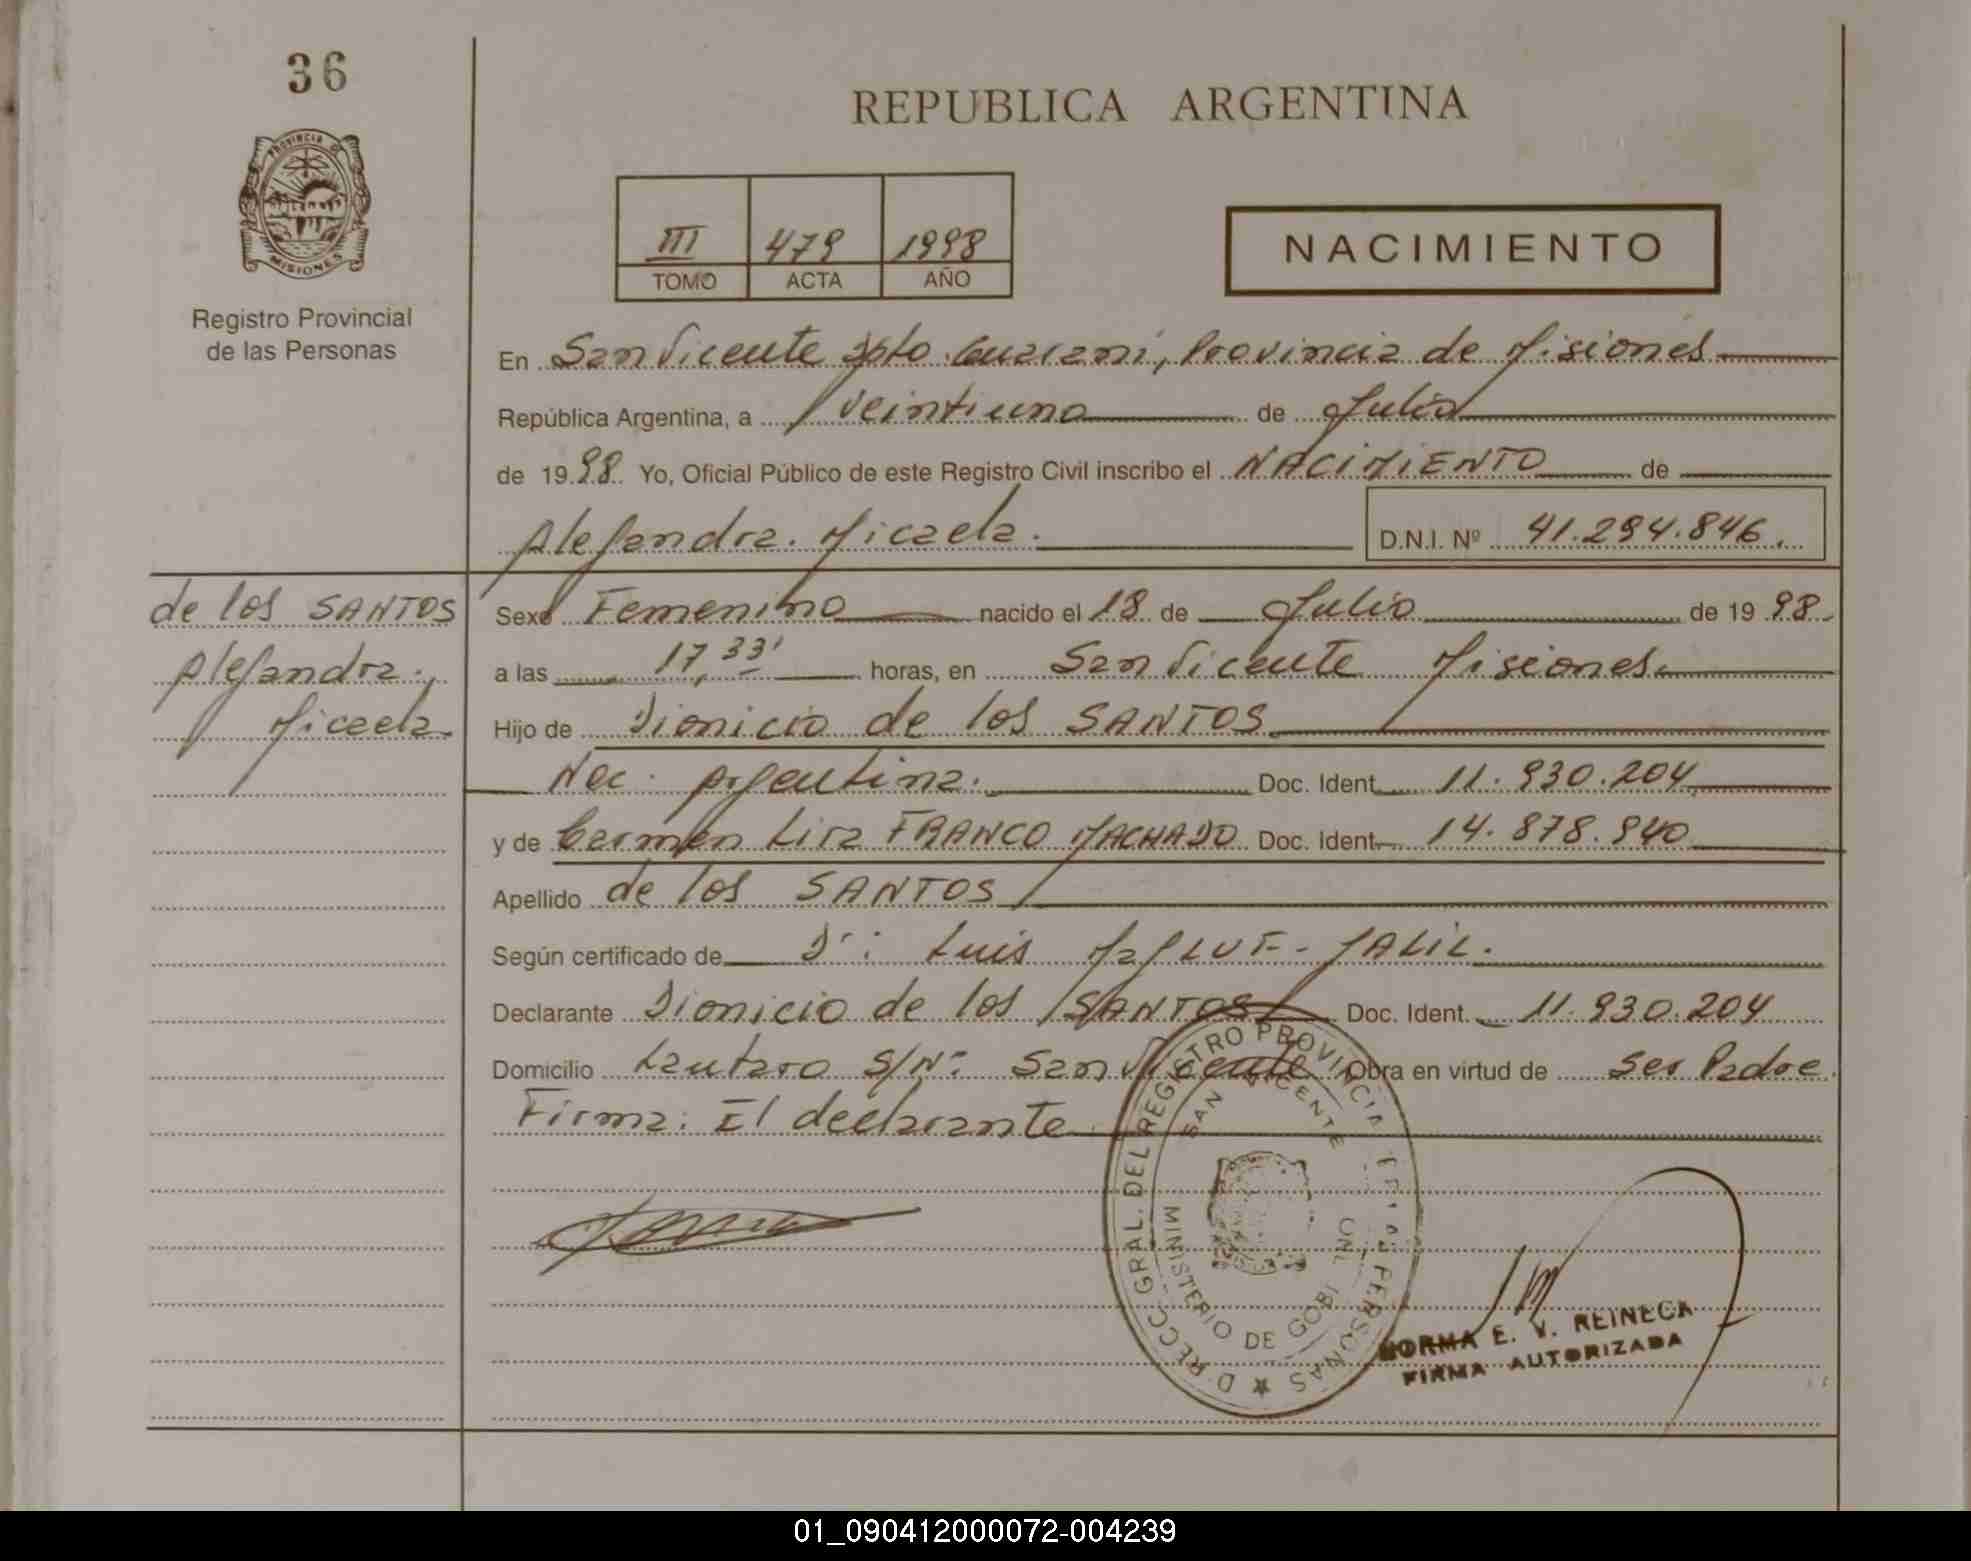 36
PROVINCIA DE
MISIONES
Registro Provincial
de las Personas
REPUBLICA ARGENTINA
III 479 1998
TOMO ACTA AÑO
NACIMIENTO
En San Vicente Dpto. Guaraní, Provincia de Misiones
República Argentina, a veintiuno de Julio
de 1998 Yo, Oficial Público de este Registro Civil inscribo el NACIMIENTO de
Alejandra Micaela. D.N.I. Nº 41.294.846.
de los SANTOS
Alejandra
Micaela
Sexo Femenino nacido el 18 de Julio de 1998
a las 17,33' horas, en San Vicente Misiones
Hijo de Dionicio de los SANTOS
Nac. Argentina. Doc. Ident. 11.930.204
y de Carmen Lira FRANCO MACHADO Doc. Ident. 14.878.940
Apellido de los SANTOS
Según certificado de Dr: Luis JALIL.
Declarante Dionicio de los SANTOS Doc. Ident. 11.930.204
Domicilio Lautaro S/Nº San Vicente Obra en virtud de Ser Padre
Firma: El declarante
D.RECC. GRAL. DEL REGISTRO PROVINCIAL PERSONAS
SAN VICENTE
MINISTERIO DE
NORMA E. V. REINECK
FIRMA AUTORIZADA
01_090412000072-004239